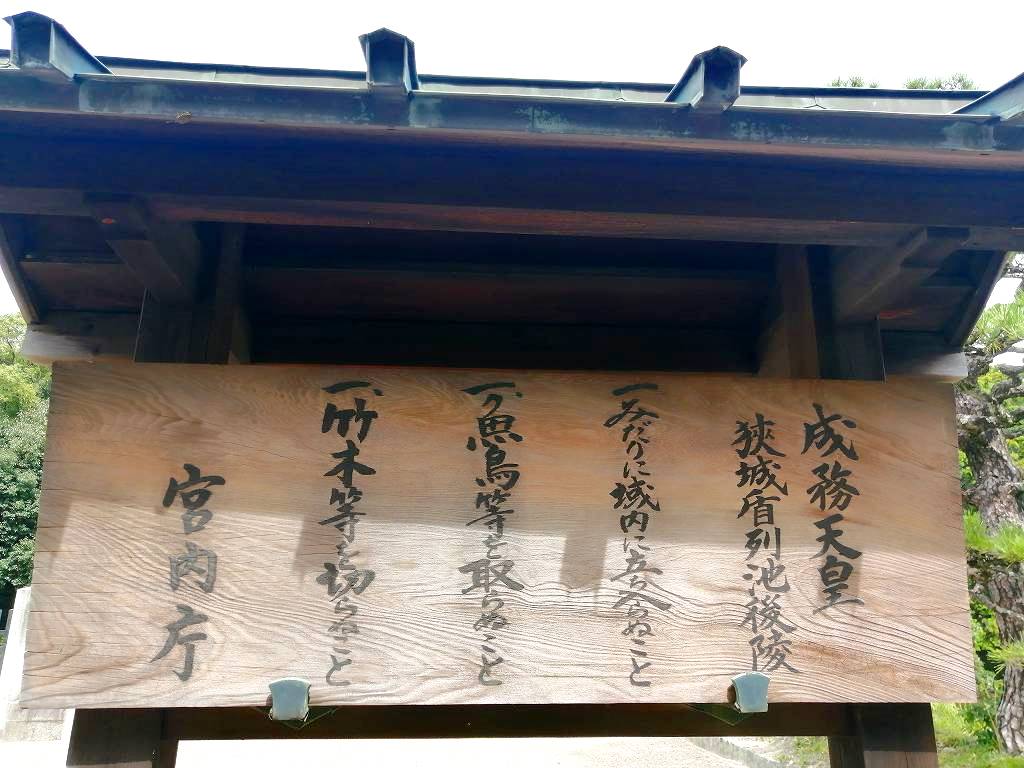 成務天皇
狭城盾列池後陵
一、みだりに域内に立ち入らぬこと
一、魚鳥等を取らぬこと
一、竹木等を切らぬこと
宮内庁